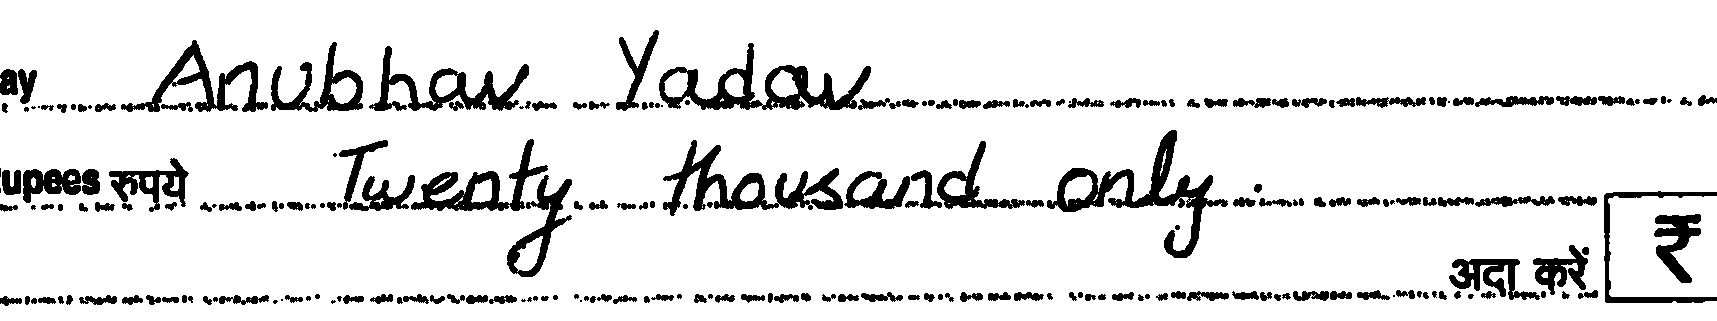 ay Anubhav Yadav
upees रुपये Twenty thousand only.
अदा करें ₹